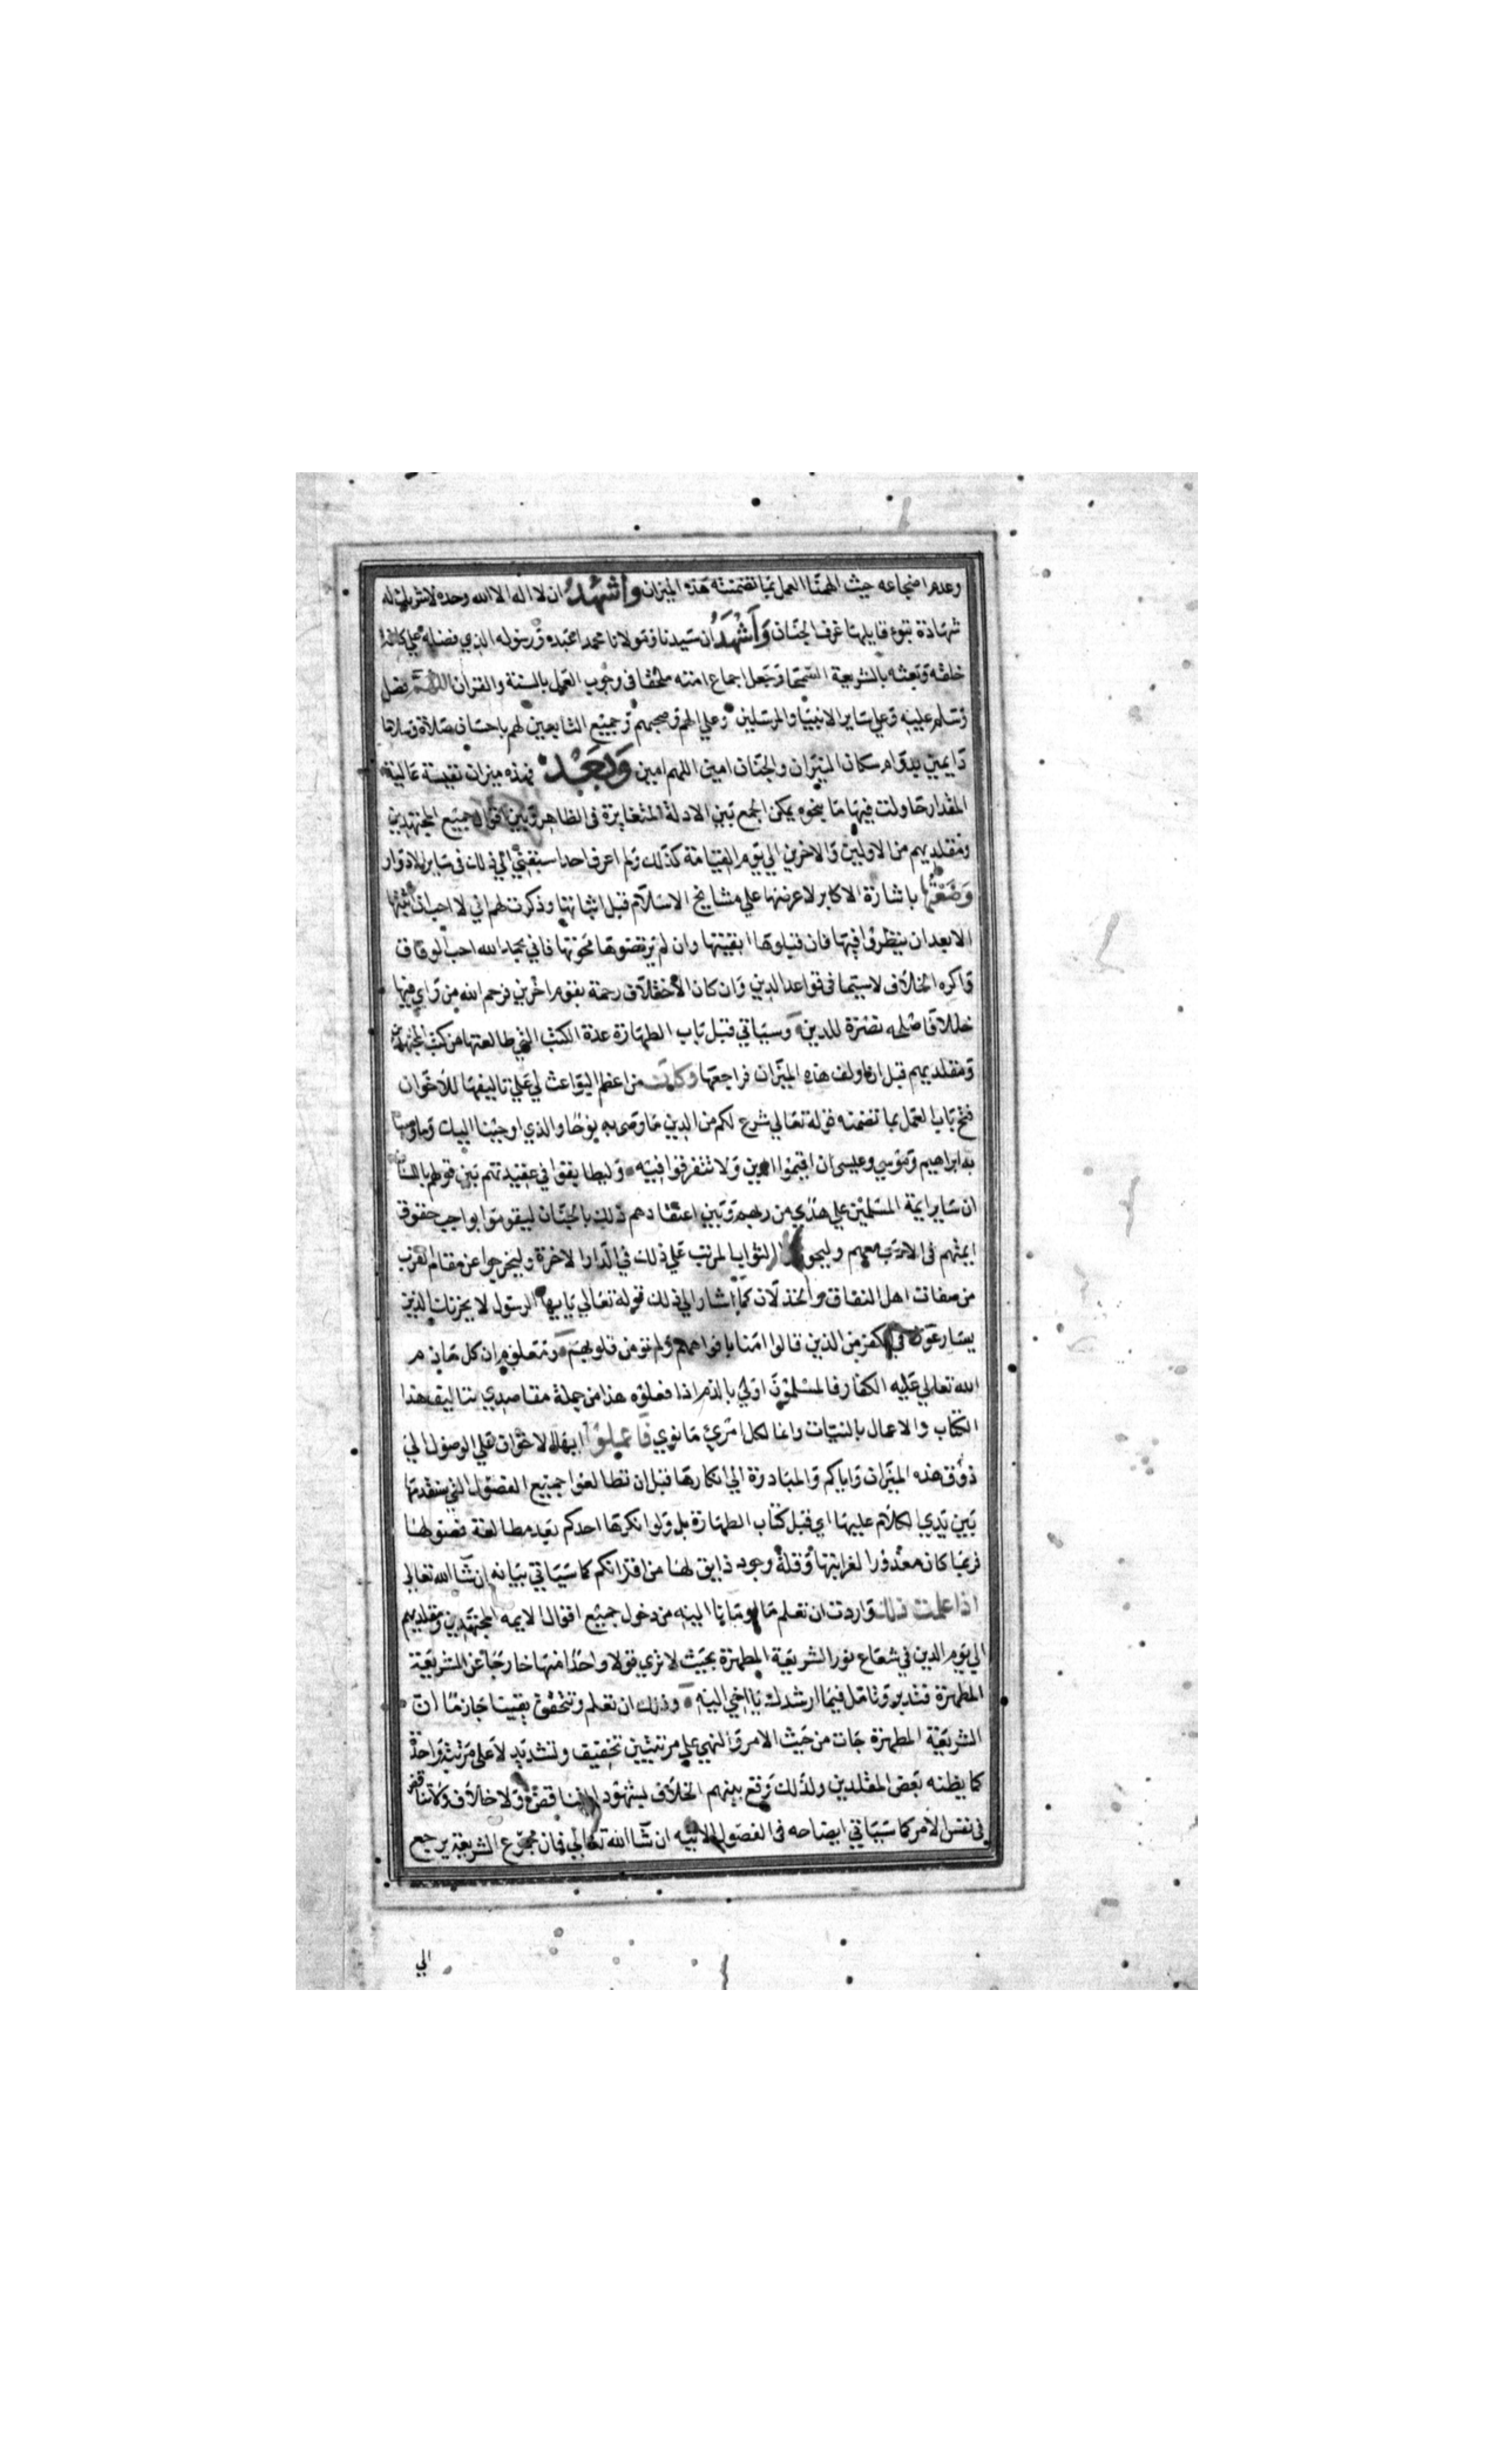 وعدم اضجاعه حيث الهمنا العمل بما تضمنته هذه الميزان واشهد ان لا اله الا الله وحده لا شريك له
شهادة تبوء قايلها غرف الجنان واشهد ان سيدنا ومولانا محمدا عبده ورسوله الذي فضله علي كافة
خلقه وبعثه بالشريعة السمحا وجعل اجماع امته ملحقا في وجوب العمل بالسنة والقران اللهم فصل
وسلم عليه وعلي ساير الانبيا والمرسلين وعلي الهم وصحبهم وجميع التابعين لهم باحسان صلاة وسلاما
دايمين بدوام سكان النيران والجنان امين اللهم امين وبعد فهذه ميزان نفيسة عالية
المقدار حاولت فيها ما نحوه يمكن الجمع بين الادلة المتغايرة في الظاهر وبين اقوال جميع المجتهدين
ومقلديهم من الاولين والاخرين الي يوم القيامة كذلك ولم اعرف احدا سبقني الي ذلك في ساير الادوار
وضعتها باشارة الاكابر لاعرضها علي مشايخ الاسلام قبل اثباتها وذكرت لهم اني لا احب ان اثبتها
الا بعد ان ينظروا فيها فان قبلوها ابقيتها وان لم يرتضوها محوتها فاني بحمد الله احب الوفاق
واكره الخلاف لا سيما في قواعد الدين وان كان الاختلاف رحمة بقوم اخرين فرحم الله من راي فيها
خللا فاصلحه نصرة للدين وسياتي قبل باب الطهارة عدة الكتب التي طالعتها من كتب المجتهدين
ومقلديهم قبل ان اولف هذه الميزان فراجعها وكان من اعظم البواعث لي علي تاليفها للاخوان
فتح باب العمل بما تضمنه قوله تعالي شرع لكم من الدين ما وصي به نوحا والذي اوحينا اليك وما وصينا
به ابراهيم وموسي وعيسي ان اقيموا الدين ولا تتفرقوا فيه وليطابقوا في عقيدتهم بين قولهم باللسان
ان ساير ايمة المسلمين علي هدي من ربهم وبين اعتقادهم ذلك بالجنان ليقوموا بواجب حقوق
ايمتهم في الادب معهم وليحوزوا الثواب المرتب علي ذلك في الدار الاخرة وليخرجوا عن مقام القرب
من صفات اهل النفاق والخذلان كما اشار الي ذلك قوله تعالي يا ايها الرسول لا يحزنك الذين
يسارعون في الكفر من الذين قالوا امنا بافواههم ولم تؤمن قلوبهم ومعلوم ان كل ما ذم
الله تعالي عليه الكفار فالمسلمون اولي بالذم اذا فعلوه هذا من جملة مقاصدي بتاليف هذا
الكتاب والاعمال بالنيات وانما لكل امرئ ما نوي فاعملوا ايها الاخوان علي الوصول الي
ذوق هذه الميزان واياكم والمبادرة الي انكارها قبل ان تطالعوا جميع الفصول التي سنقدمها
بين يدي الكلام عليها اي قبل كتاب الطهارة بل ولو انكرها احدكم بعد مطالعة فصولها
فربما كان معذورا لغرابتها وقلة وجود ذايق لها من اقرانكم كما سياتي بيانه ان شا الله تعالي
اذا علمت ذلك واردت ان تعلم ما اومانا اليه من دخول جميع اقوال الايمه المجتهدين ومقلديهم
الي يوم الدين في شعاع نور الشريعة المطهرة بحيث لا تري قولا واحدا منها خارجا عن الشريعة
المطهرة فتدبر وتامل فيما ارشدك يا اخي اليه وذلك ان تعلم وتتحقق يقينا جازما ان
الشريعة المطهرة جات من حيث الامر والنهي علي مرتبتين تخفيف وتشديد لا علي مرتبة واحدة
كما يظنه بعض المقلدين ولذلك وقع بينهم الخلاف بشهود التناقض ولا خلاف ولا تناقض
في نفس الامر كما سياتي ايضاحه في الفصول الاتيه ان شا الله تعالي فان مجموع الشريعة يرجع
الي